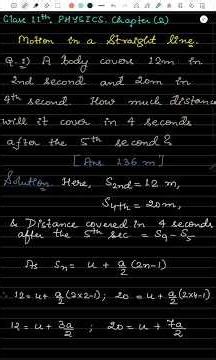 Class 11th, PHYSICS, Chapter (2)
Motion in a Straight line.
Q.1) A body covers 12m in
2nd second and 20m in
4th second. How much distance
will it cover in 4 seconds
after the 5th second?
[Ans 136 m]
Solution. Here, S2nd = 12 m,
S4th = 20m,
& Distance covered in 4 seconds
after the 5th sec = S9 - S5
As Sn = u + a/2 (2n-1)
∴ 12 = u + a/2 (2×2-1); 20 = u + a/2 (2×4-1)
12 = u + 3a/2 ; 20 = u + 7a/2